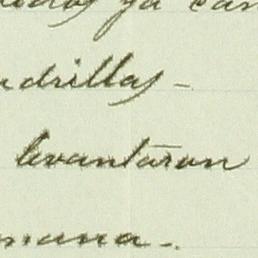 ya
drillas -
levantaron
mana -.